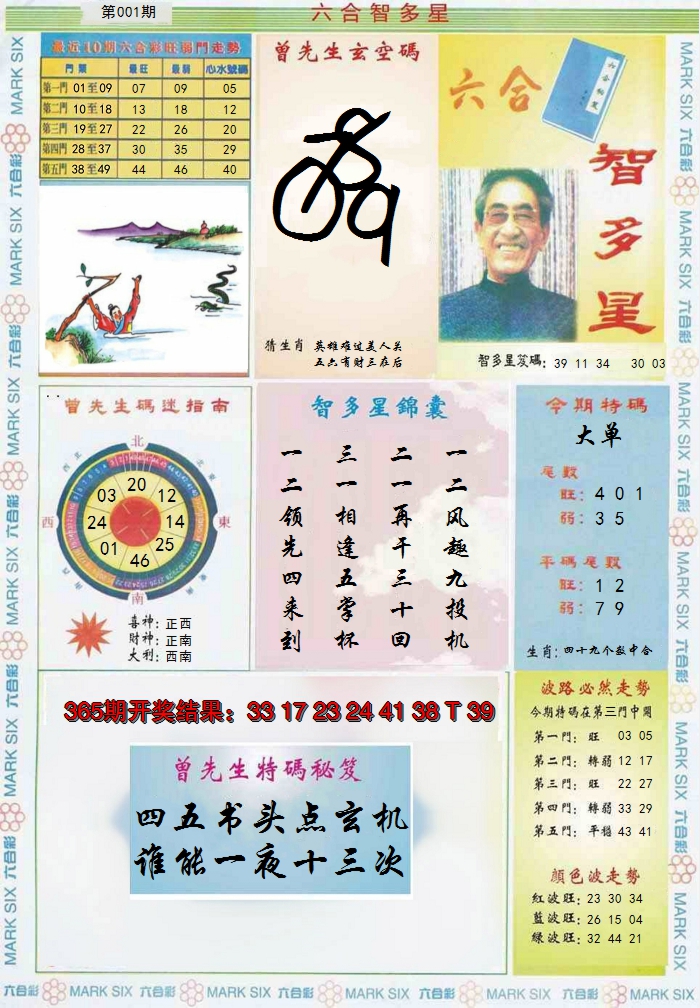 第001期
六合智多星
最近10期六合彩旺弱門走勢
門類 最旺 最弱 心水號碼
第一門 01至09 07 09 05
第二門 10至18 13 18 12
第三門 19至27 22 26 20
第四門 28至37 30 35 29
第五門 38至49 44 46 40
曾先生玄空碼
猜生肖 英雄难过美人关
五六有财三在后
六合
智多星
智多星笈碼: 39 11 34 30 03
曾先生碼迷指南
北
西
東
南
20
12
14
25
46
01
24
03
喜神: 正西
财神: 正南
大利: 西南
智多星錦囊
一二风趣九投机
二一再干三十回
三一相逢五掌杯
一二领先四来到
今期特碼
大单
尾數
旺: 4 0 1
弱: 3 5
平碼尾數
旺: 1 2
弱: 7 9
生肖: 四十九个数中合
365期开奖结果: 33 17 23 24 41 38 T 39
曾先生特碼秘笈
四五书头点玄机
谁能一夜十三次
波路必然走勢
今期特碼在第三門中開
第一門: 旺 03 05
第二門: 轉弱 12 17
第三門: 旺 22 27
第四門: 轉弱 33 29
第五門: 平穩 43 41
顏色波走勢
紅波旺: 23 30 34
藍波旺: 26 15 04
绿波旺: 32 44 21
六合彩 MARK SIX 六合彩 MARK SIX 六合彩 MARK SIX 六合彩 MARK SIX 六合彩